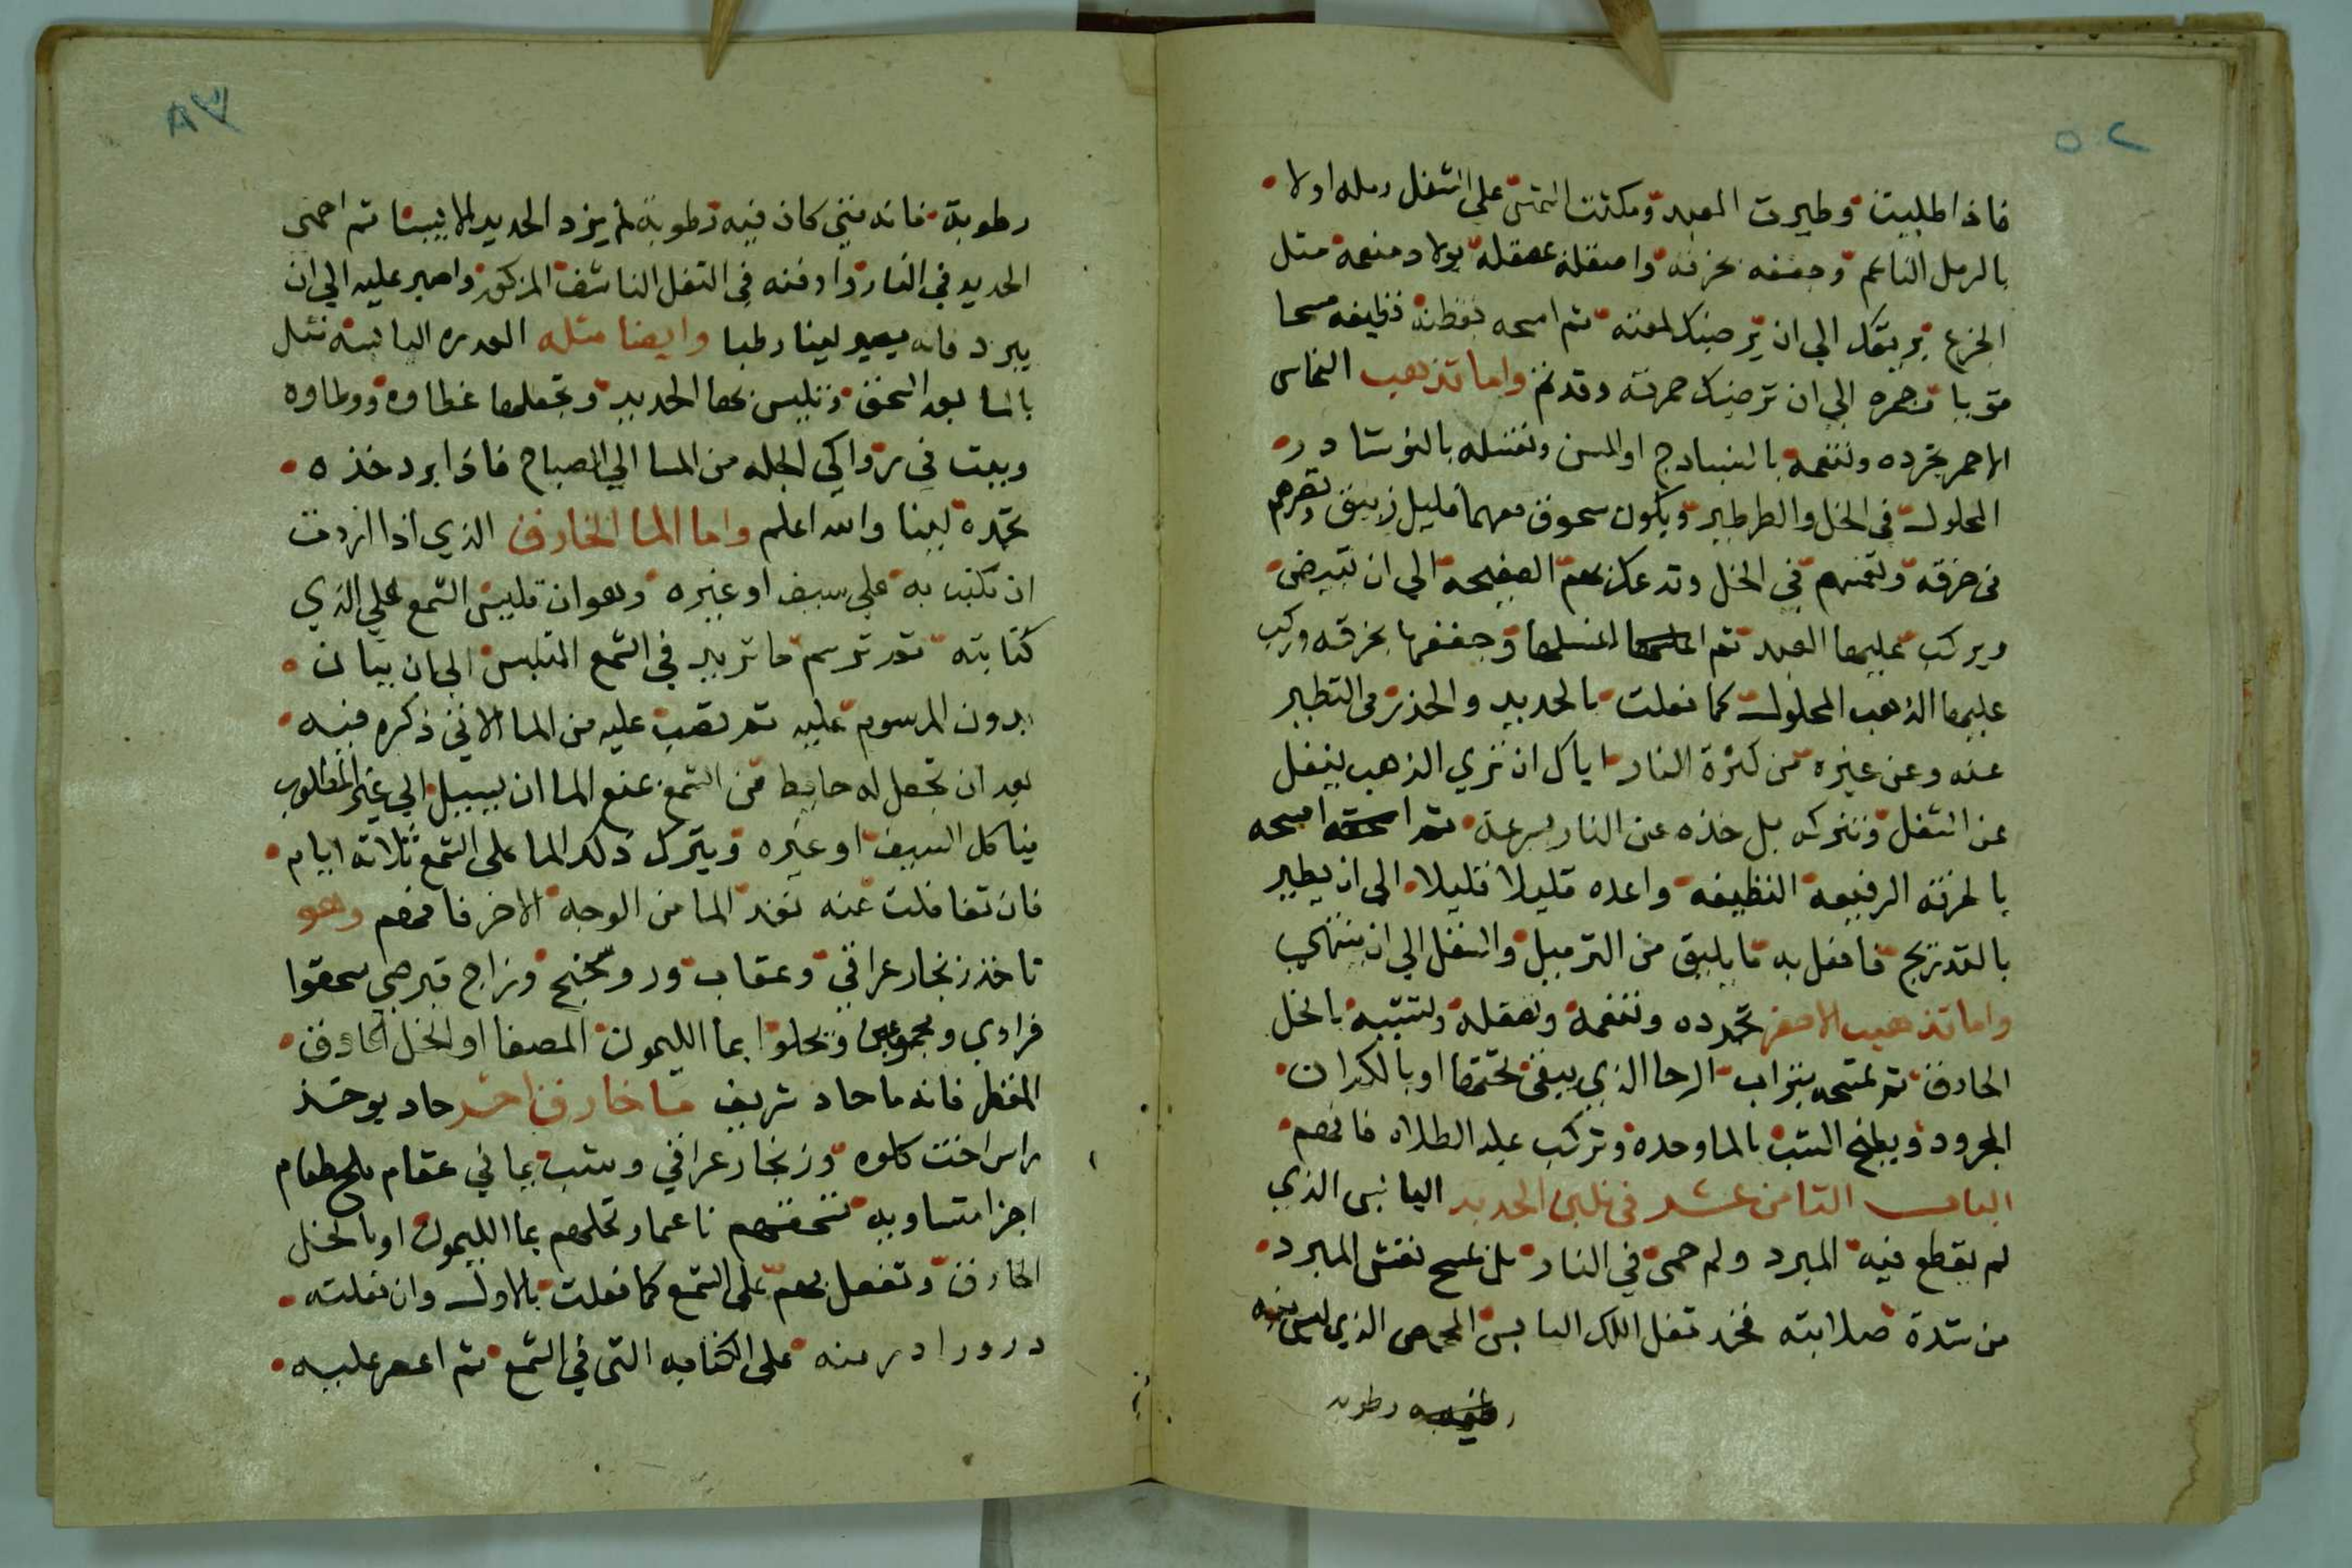 فاذا طلبيت وطيرت العبد ومكثت التمشى على الثفل رمله اولا
بالرمل الناعم وجففه بخرقه واصقله بمصقلة بولاد منعمة مثل
الجزع بريقك الي ان يرضيك لمعته ثم امسحه بقطنه نظيفه مسحا
قويا وجمره الي ان ترضيك حمرته وقد تم واما تذهيب النحاس
الاحمر تجرده وتنعمه بالسنبادج او المسن وتغسله بالنوشادر
المحلول في الخل والطرطير ويكون سحوق معهما قليل زيبق وتصرهم
في خرقه وتغمسهم في الخل وتدعك بهم الصفيحه الي ان تبيض
ويركب عليها العبد ثم اغسلها وجففها بخرقه وركب
عليها الذهب المحلول كما فعلت بالحديد والحذر في التطيير
عنه وعن غيره من كثرة النار اياك ان تري الذهب ينفل
عن الثفل وتتركه بل خذه عن النار بسرعة ثم امسحه
بالخرقه الرفيعه النظيفه واعده قليلا قليلا الي ان يطير
بالتدريج فافعل به ما يليق من الترميل والثفل الي ان ينتهي
واما تذهيب الاصفر تجرده وتنعمه وتصقله وتشببه بالخل
الحاذق ثم تمسحه بتراب الرحا الذي يبقى تحتها او بالكدان
المجرود ويطبخ الشب بالما وحده وتركب عليه الطلاء فافهم
الباب الثامن عشر في تليين الحديد اليابس الذي
لم يقطع فيه المبرد ولم حمى في النار بل يمسح نقش المبرد
من شدة صلابته فخذ ثفل اللك اليابس المحمص الذي ليس فيه
رطوبه
رطوبة فانه متى كان فيه رطوبة لم يزد الحديد الا يبسا ثم احمى
الحديد في النار وادفنه في الثفل الناشف المذكور واصبر عليه الي ان
يبرد فانه يصير لينا رطبا وايضا مثله العدره اليابسه تبل
بالما بعد السحق وتلبس بها الحديد وتجعلها غطاوه ووطاوه
ويبت في رواكي الجله من المسا الي الصباح فاذا برد خذه
تجده لينا والله اعلم واما الما الخارق الذي اذا اردت
ان تكتب به علي سيف او غيره وهو ان تلبس الشمع علي الذي
كتابته ثم ترسم ما تريد في الشمع المتلبس الي ان يبان
بدون المرسوم عليه ثم تصب عليه من الما الاتي ذكره فيه
بعد ان تجعل له حايط من الشمع تمنع الما ان يسيل الي غير المطلوب
فياكل السيف او غيره ويترك ذلك الما على الشمع ثلاثة ايام
فان تغافلت عنه نفد الما من الوجه الاخر فافهم وهو
تاخذ زنجار عراقي وعقاب وروسختج وزاج قبرصي سحقوا
فرادي ومجموعين ويحلوا بما الليمون المصفا او الخل الحاذق
المقطر فانه ما حاد شريف ما خارق اخر حاد يوخذ
راس اخت كلوه وزنجار عراقي وشب يماني عقام ملح طعام
اجزا متساويه تسحقهم ناعما وتحلهم بما الليمون او بالخل
الحاذق وتفعل بهم على الشمع كما فعلت بالاول وان فعلته
درورا در منه على الكتابه التي في الشمع ثم اعصر عليه